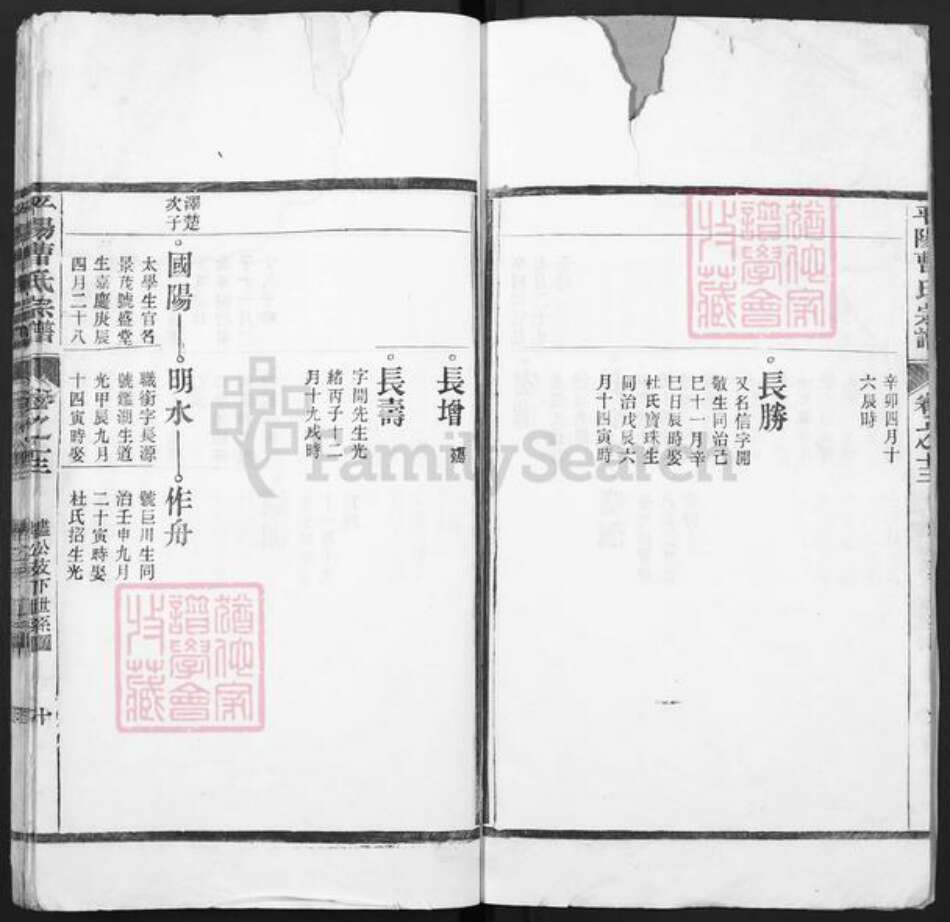 平陽曹氏宗譜
卷之十三
辛卯四月十
六辰時
長勝
又名信字開
敬生同治己
巳十一月辛
巳日辰時娶
杜氏寶珠生
同治戊辰六
月十四寅時
長增
長壽
字間先生光
緒丙子十二
月十九戌時
澤楚
次子
國陽
太學生官名
景茂號盛堂
生嘉慶庚辰
四月二十八
明水
職銜字長源
號鑑湖生道
光甲辰九月
十四寅時娶
作舟
號巨川生同
治壬申九月
二十寅時娶
杜氏招生光
平陽曹氏宗譜
卷之十三
公支下世系圖
十
FamilySearch
譜學會
收藏
譜學會
收藏